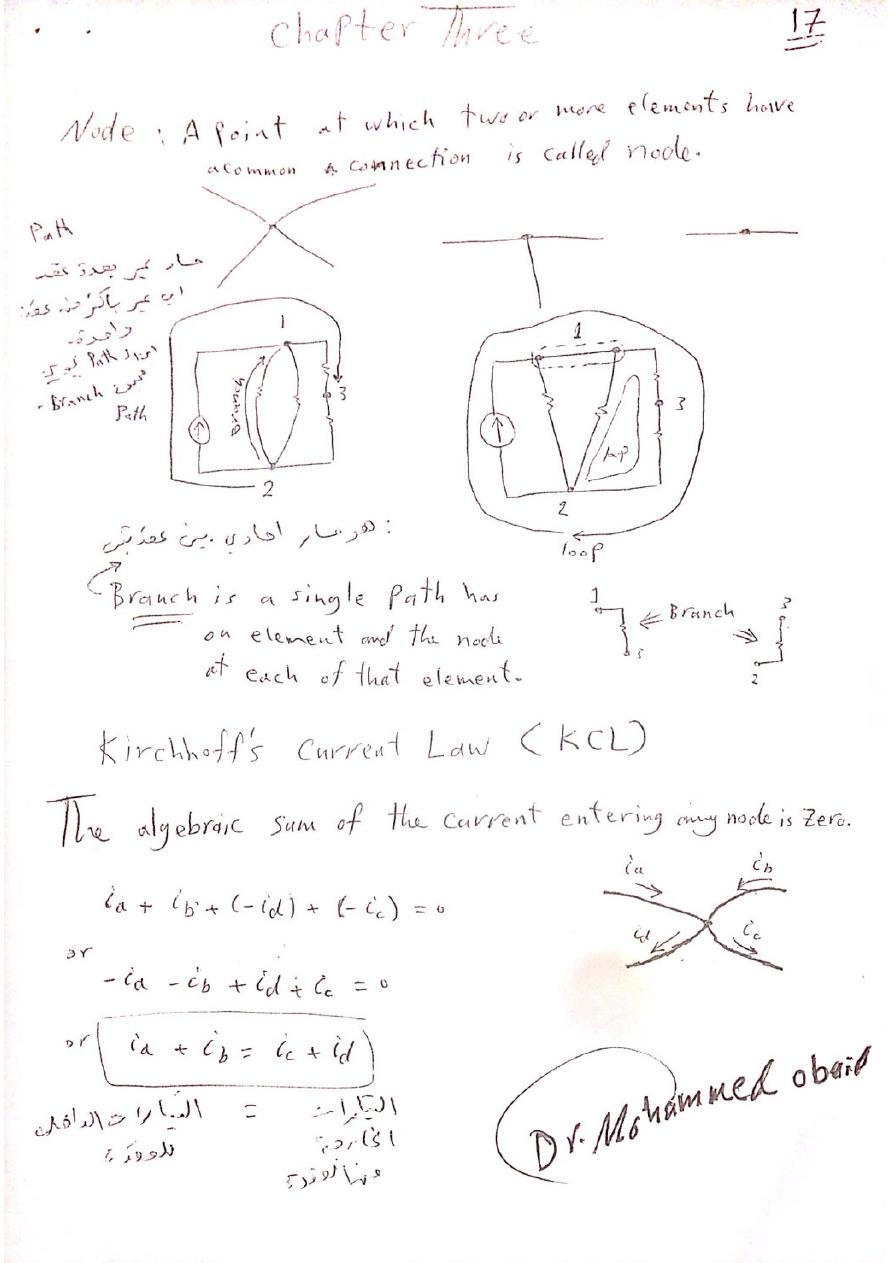 Chapter Three
17
Node : A Point at which two or more elements have
a common connection is called node.
Path
مسار عبر بعدة عقد
اي عبر باكثر من عقدة
واحدة.
Path
Branch
Path
1
Branch
3
2
1
3
loop
2
loop
: هو مسار احادي بين عقدتين
Branch is a single Path has
on element and the node
at each of that element.
1
3
Branch
3
2
Kirchhoff's Current Law (KCL)
The algebraic sum of the current entering any node is Zero.
ia + ib + (-id) + (-ic) = 0
or
-ia - ib + id + ic = 0
or ia + ib = ic + id
ia
ib
id
ic
التيارات الداخلة = التيارات
للعقدة الخارجة
من العقدة
Dr. Mohammed obaid